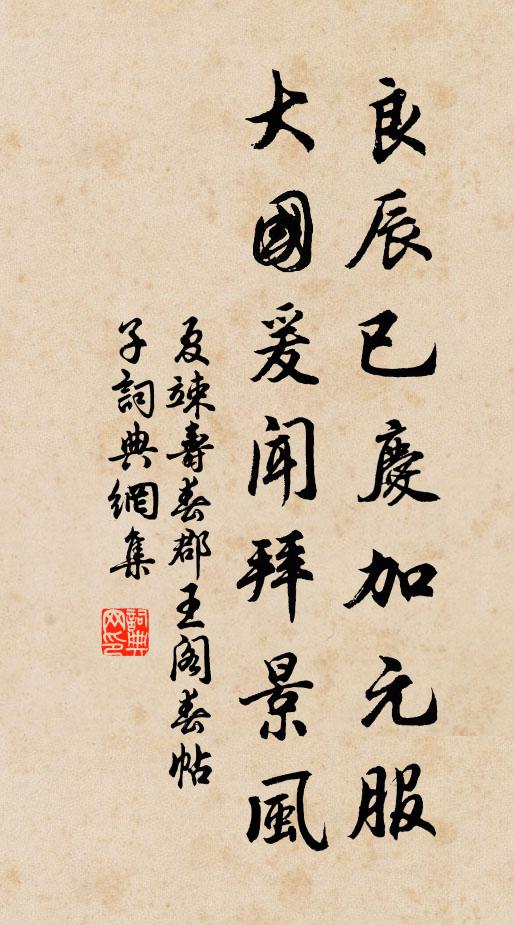 良辰已慶加元服
大國爰聞拜景風
夏竦壽春郡王閣春帖
子詞典網集
詞典
网印